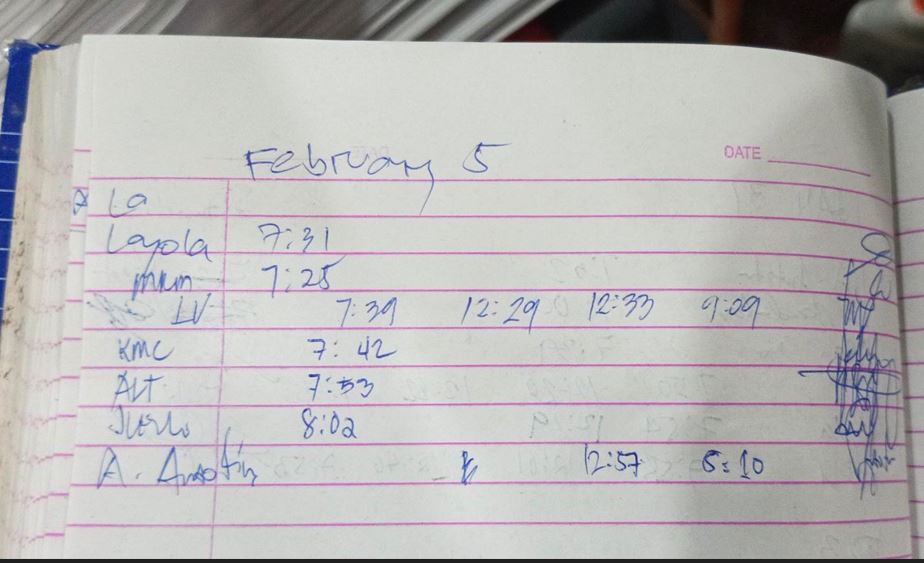 DATE
February 5
La
Layola 7:31
mkm 7:25
LV 7:39 12:29 12:33 9:09
KMC 7:42
ALT 7:53
8:02
A. 12:57 5:10